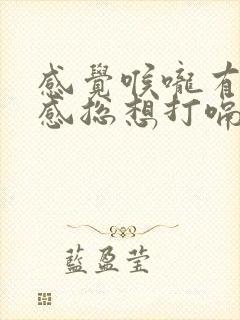 感覺喉嚨有
感總想打嗝
藍盈莹